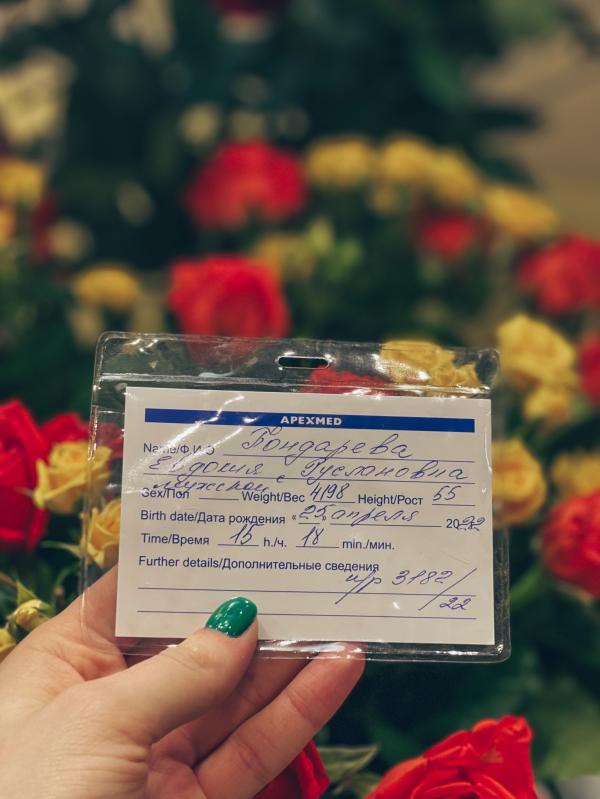 APEXMED
Name/Ф.И.О Бондарева
Евдокия Руслановна
Sex/Пол мужской Weight/Вес 4198 Height/Рост 55
Birth date/Дата рождения «25» апреля 2022
Time/Время 15 h./ч. 18 min./мин.
Further details/Дополнительные сведения
и/р 3182/
22